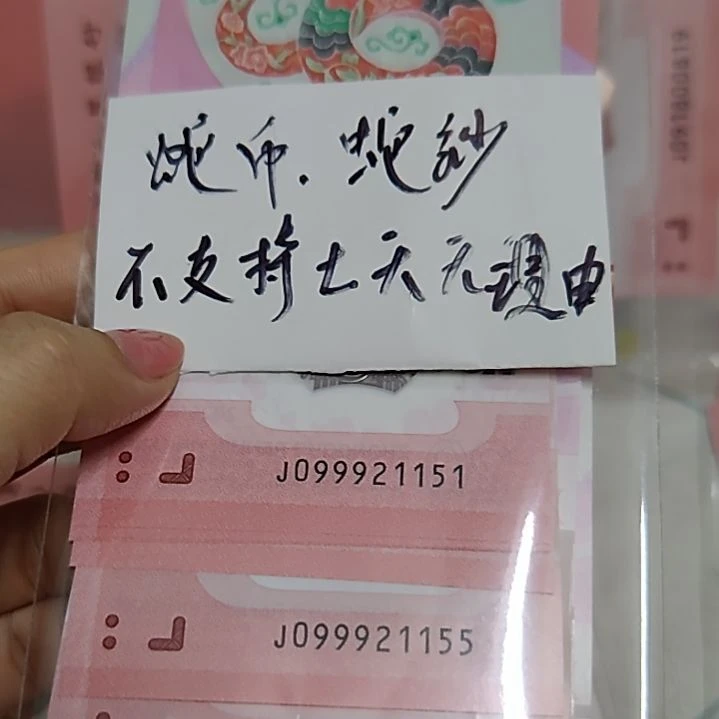 蛇币.蛇钞
不支持七天无理由
J099921151
J099921155